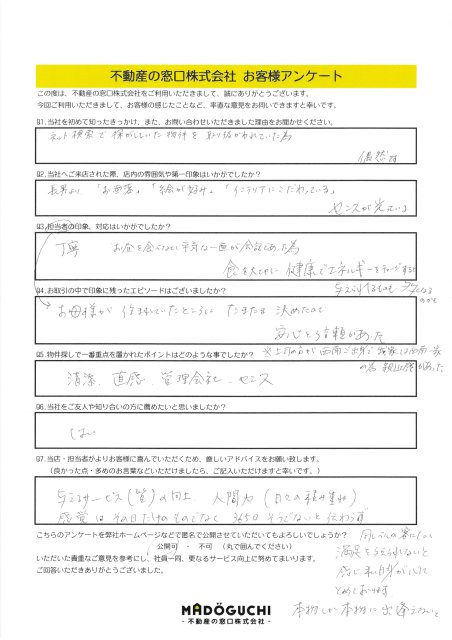 不動産の窓口株式会社 お客様アンケート
この度は、不動産の窓口株式会社をご利用いただきまして、誠にありがとうございます。
今回ご利用いただきまして、お客様の感じたことなど、率直な意見をお伺いできますと幸いです。
Q1.当社を初めて知ったきっかけ、また、お問い合わせいただきました理由をお聞かせください。
ネット検索で探がしていた物件を取り扱かわれていた為
偶然
Q2.当社へご来店された際、店内の雰囲気や第一印象はいかがでしたか?
長男より 「お洒落」「絵が好み」「インテリアにこだわっている」
センスが光っている
Q3.担当者の印象、対応はいかがでしたか?
丁寧
食を大切に 健康でエネルギーを
Q4.お取引の中で印象に残ったエピソードはございましたか?
お母様が住まれていたところに たまたま 決めたので
安心と信頼があった
Q5.物件探しで一番重点を置かれたポイントはどのような事でしたか?
清潔、直感、管理会社、センス
Q6.当社をご友人や知り合いの方に薦めたいと思いましたか?
はい
Q7.当店・担当者がよりお客様に喜んでいただくため、厳しいアドバイスをお願い致します。
(良かった点・多めのお言葉などいただけましたら、ご記入いただけますと幸いです。)
サービス(質)の向上、人間力(日々の積み重ね)
感覚はその日だけのものでなく 365日そうでないと伝わらず
こちらのアンケートを弊社ホームページなどで匿名で公開させていただいてもよろしいでしょうか?
公開可 ・ 不可 (丸で囲んでください)
いただいた貴重なご意見を参考にし、社員一同、更なるサービス向上に努めてまいります。
ご回答いただきありがとうございました。
満足を与えられないと
本物しか本物に出逢えないと
MADOGUCHI
- 不動産の窓口株式会社 -